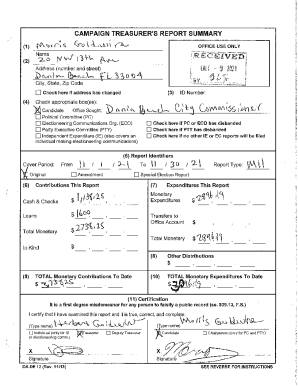 CAMPAIGN TREASURER'S REPORT SUMMARY
(1) Morris Goldwira
Name
OFFICE USE ONLY
(2) 20 NW 13th Ave
Address (number and street)
RECEIVED
Dania Beach FL 33004
City, State, Zip Code
DEC - 9 2021
BY:
Check here if address has changed
(3) ID Number:
(4) Check appropriate box(es):
Candidate Office Sought: Dania Beach City Commissioner
Political Committee (PC)
Electioneering Communications Org. (ECO)
Check here if PC or ECO has disbanded
Party Executive Committee (PTY)
Check here if PTY has disbanded
Independent Expenditure (IE) (also covers an individual making electioneering communications)
Check here if no other IE or EC reports will be filed
(5) Report Identifiers
Cover Period: From 11 / 1 / 21 To 11 / 30 / 21 Report Type: M11
Original
Amendment
Special Election Report
(6) Contributions This Report
(7) Expenditures This Report
Cash & Checks $ 1,138.25
Monetary Expenditures $ 2896.19
Loans $ 1600
Transfers to Office Account $
Total Monetary $ 2738.25
Total Monetary $ 2896.19
In-Kind $
(8) Other Distributions
$
(9) TOTAL Monetary Contributions To Date
(10) TOTAL Monetary Expenditures To Date
$
$
(11) Certification
It is a first degree misdemeanor for any person to falsify a public record (ss. 839.13, F.S.)
I certify that I have examined this report and it is true, correct, and complete:
(Type name)
(Type name) Morris
Individual (only for IE or electioneering comm.)
Treasurer
Deputy Treasurer
Candidate
Chairperson (only for PC and PTY)
X
X
Signature
Signature
DS-DE 12 (Rev. 11/13)
SEE REVERSE FOR INSTRUCTIONS